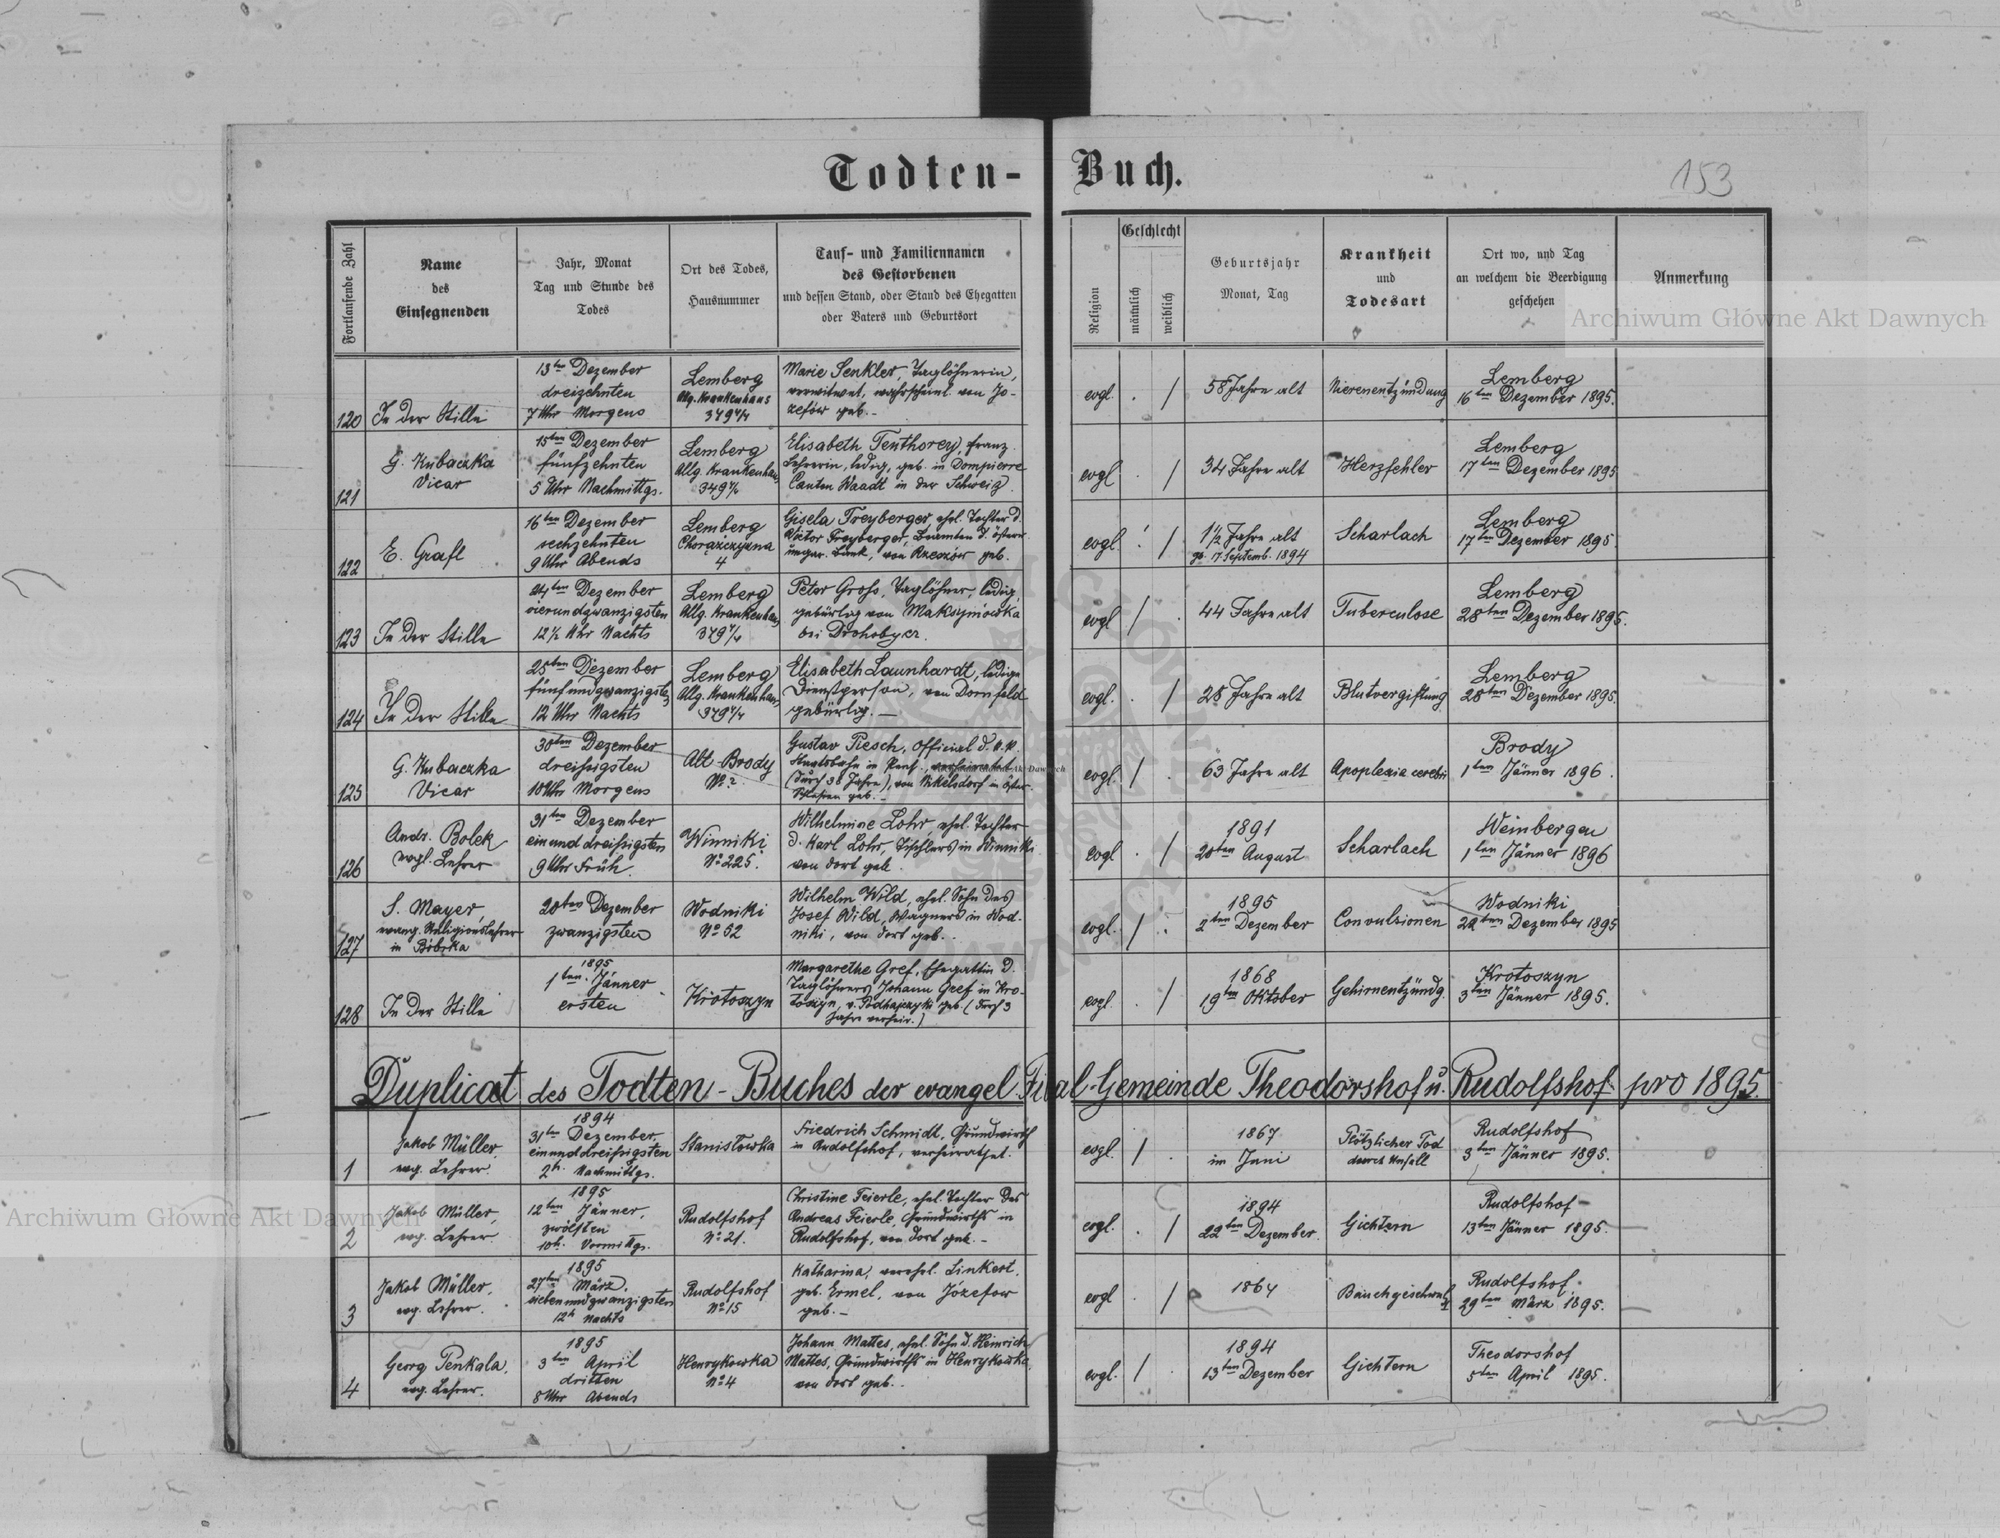 Todten-Buch.
153
Fortlaufende Zahl
Name
des
Einsegnenden
Jahr, Monat
Tag und Stunde des
Todes
Ort des Todes,
Hausnummer
Tauf- und Familiennamen
des Gestorbenen
und dessen Stand, oder Stand des Ehegatten
oder Vaters und Geburtsort
Religion
Geschlecht
männlich
weiblich
Geburtsjahr
Monat, Tag
Krankheit
und
Todesart
Ort wo, und Tag
an welchem die Beerdigung
geschehen
Anmerkung
Archiwum Główne Akt Dawnych
120
In der Stille
13ten Dezember
dreizehnten
7 Uhr Morgens
Lemberg
Allg. Krankenhaus
379 1/4
Marie Senkler, Taglöhnerin,
verwitwet, wahrscheinl. von Jo-
zefów geb. -
evgl. /
58 Jahre alt
Nierenentzündung
Lemberg
16ten Dezember 1895.
121
G. Kubaczka
Vicar
15ten Dezember
fünfzehnten
5 Uhr Nachmittgs.
Lemberg
Allg. Krankenhaus
Elisabeth Tenthorey, franz.
Lehrerin, ledig, geb. in Dompierre
Canton Waadt in der Schweiz.
evgl /
34 Jahre alt
Herzfehler
Lemberg
17ten Dezember 1895
122
E. Grafl
16ten Dezember
sechzehnten
9 Uhr Abends
Lemberg
Chorążczyzna
4
Gisela Freyberger, ehel. Tochter d.
Victor Freyberger, Beamten d. österr.
ungar. Bank, von Rzeszów geb.
evgl. /
1 1/2 Jahre alt
gb. 17. Septemb. 1894
Scharlach
Lemberg
17ten Dezember 1895.
123
In der Stille
24ten Dezember
vierundzwanzigsten
12 1/2 Uhr Nachts
Lemberg
Allg. Krankenhaus
379 1/4
Peter Groß, Taglöhner, ledig,
gebürtig von Maksymówka
bei Drohobycz.
evgl /
44 Jahre alt
Tuberculose
Lemberg
28ten Dezember 1895.
124
In der Stille
25ten Dezember
fünfundzwanzigsten
12 Uhr Nachts
Lemberg
Allg. Krankenhaus
379 1/4
Elisabeth Launhardt, ledige
Dienstperson, von Dornfeld
gebürtig. -
evgl. /
28 Jahre alt
Blutvergiftung
Lemberg
28ten Dezember 1895.
125
G. Kubaczka
Vicar
30ten Dezember
dreissigsten
10 Uhr Morgens
Alt-Brody
No ?
Gustav Piesch, Official d. k. k.
Staatsbahn in Pens., verheiratet
(durch 30 Jahre), von Nikelsdorf in öster.
Schlesien geb. -
evgl. /
63 Jahre alt
Apoplexia cerebri
Brody
1ten Jänner 1896.
126
Andr. Bolek
evgl. Lehrer
31ten Dezember
einunddreissigsten
9 Uhr Früh.
Winniki
No 225.
Wilhelmine Lohr, ehel. Tochter
d. Karl Lohr, Tischlers in Winniki
von dort geb.
evgl /
1891
20ten August
Scharlach
Weinbergen
1ten Jänner 1896
127
S. Mayer,
evang. Religionslehrer
in Bóbrka
20ten Dezember
zwanzigsten
Wodniki
No 52
Wilhelm Wild, ehel. Sohn des
Josef Wild, Wagners in Wod-
niki, von dort geb.
evgl. /
1895
2ten Dezember
Convulsionen
Wodniki
22ten Dezember 1895
128
In der Stille
1895
1ten Jänner
ersten
Krotoszyn
Margarethe Gref, Ehegattin d.
Taglöhners Johann Gref in Kro-
toszyn, v. Podhajczyki geb. (durch 3
Jahre verheir.)
evgl. /
1868
19ten Oktober
Gehirnentzündg.
Krotoszyn
3ten Jänner 1895.
Duplicat des Todten-Buches der evangel. Filial-Gemeinde Theodorshof u. Rudolfshof pro 1895.
1
Jakob Müller,
evg. Lehrer.
1894
31ten Dezember,
einunddreissigsten
2h. Nachmittgs.
Stanisłówka
Friedrich Schmidt, Grundwirth
in Rudolfshof, verheirathet.
evgl. /
1867
im Juni
Plötzlicher Tod
durch Unfall
Rudolfshof
3ten Jänner 1895.
2
Jakob Müller,
evg. Lehrer.
1895
12ten Jänner,
zwölften
10h. Vormittgs.
Rudolfshof
No 21.
Christine Feierle, ehel. Tochter des
Andreas Feierle, Grundwirths in
Rudolfshof, von dort geb. -
evgl. /
1894
22ten Dezember.
Gichtern
Rudolfshof
13ten Jänner 1895.
3
Jakob Müller,
evg. Lehrer.
1895
27ten März,
siebenundzwanzigsten
12h Nachts
Rudolfshof
No 15
Katharina, verehel. Linkert,
geb. Ermel, von Józefow
geb. -
evgl /
1864
Bauchgeschwulst
Rudolfshof.
29ten März 1895.
4
Georg Penkala,
evg. Lehrer.
1895
3ten April
dritten
8 Uhr Abends
Henrykówka
No 4
Johann Mattes, ehel. Sohn d. Heinrich
Mattes, Grundwirths in Henrykówka,
von dort geb.
evgl. /
1894
13ten Dezember
Gichtern
Theodorshof
5ten April 1895.
Archiwum Główne Akt Dawnych